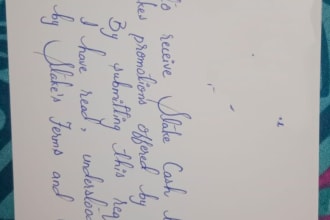 o receive Stake Cash
kes promotions offered by
By submitting this req
I have read, understood
by Stake's Terms and